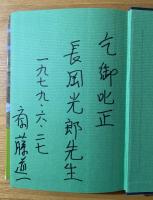 乞御叱正
長岡光郎先生
一九七九・六・二七
斎藤進一